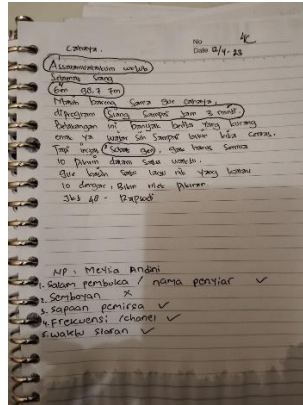 No 4C
Cahaya.
Date 12/4-23
Assalamualaikum wr.wb
Selamat Siang
98.7 Fm
Masih bareng Sama gue cahaya,
diprogram Siang Sampai Jam 3 nanti
Belakangan ini banyak berita yang kurang
enak ya
Tapi ingat Sobat gen, gak harus Semua
10 Pikirin dalam Satu waktu.
gue kasih Satu lagu nih yang
10 dengar, Bikin rilek Pikiran
Jkt 48 - Rapsodi
NP. Meyia Andini
1. Salam pembuka / nama penyiar ✓
2. Semboyan ×
3. Sapaan pemirsa ✓
4. Frekuensi / chanel ✓
5. Waktu siaran ✓